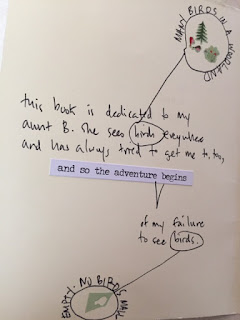 MANY BIRDS IN A WOODLAND
this book is dedicated to my
aunt B. She sees birds everywhere
and has always tried to get me to, too,
and so the adventure begins
of my failure
to see birds.
EMPTY. NO BIRDS